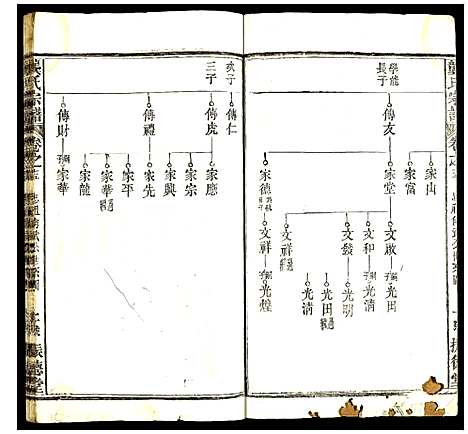 學龍
長子
傳友
家山
家富
家堂
家德
文啟
文和
文發
文祥
文祥
光田
光清
光明
光田
光清
光煌
次子
傳仁
三子
傳虎
傳禮
傳財
家應
家宗
家興
家先
家平
家華
家龍
家華
氏宗譜
卷之
振德堂